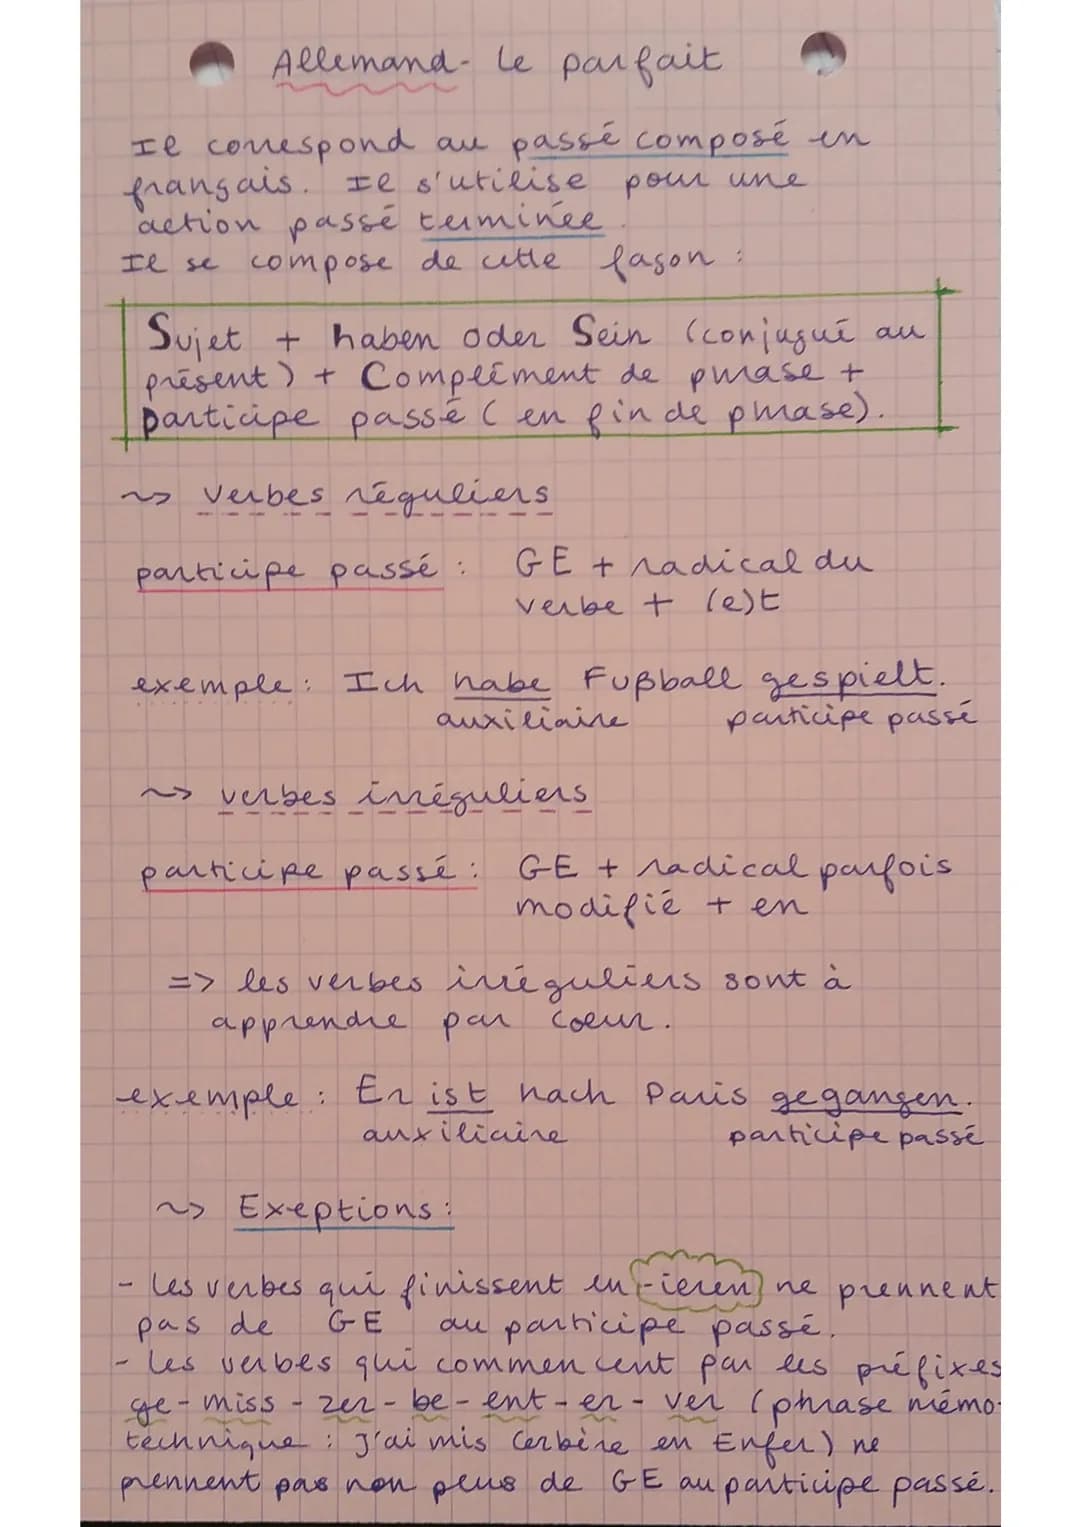 Allemand - le parfait
Il correspond au passé composé en
français. Il s'utilise pour une
action passé terminée.
Il se compose de cette façon :
Sujet + haben oder Sein (conjugué au
présent) + Complément de phrase +
participe passé (en fin de phrase).
~> verbes réguliers
participe passé : GE + radical du
verbe + (e)t
exemple : Ich habe Fußball gespielt.
auxiliaire participe passé
~> verbes irréguliers
participe passé : GE + radical parfois
modifié + en
=> les verbes irréguliers sont à
apprendre par coeur.
exemple : Er ist nach Paris gegangen.
auxiliaire participe passé
~> Exeptions :
- les verbes qui finissent en -ieren ne prennent
pas de GE au participe passé.
- les verbes qui commencent par les préfixes
ge - miss - zer - be - ent - er - ver (phrase mémo-
technique : J'ai mis Cerbère en Enfer) ne
prennent pas non plus de GE au participe passé.